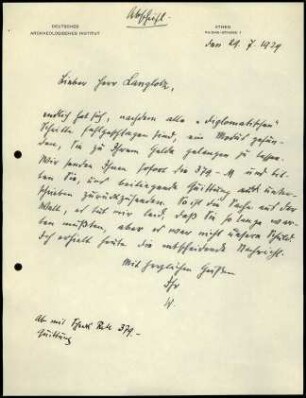 Abschrift.
DEUTSCHES
ARCHÄOLOGISCHES INSTITUT
ATHEN
PHIDIAS-STRASSE 1
den 29. 7. 1929
Lieber Herr Langlotz,
endlich hat sich, nachdem alle „diplomatischen"
Schritte fehlgeschlagen sind, ein Modus gefun-
den, Sie zu Ihrem Gelde gelangen zu lassen.
Wir senden Ihnen sofort die 379.- M und bit-
ten Sie, uns beiliegende Quittung unter-
schrieben zurückzusenden. So ist die Sache aus der
Welt, es tut mir leid, daß Sie so lange war-
ten mußten, aber es war nicht unsere Schuld.
Ich erhielt heute die entscheidende Nachricht.
Mit herzlichen Grüßen
Ihr
W.
Ab mit Scheck 379.-
Quittung